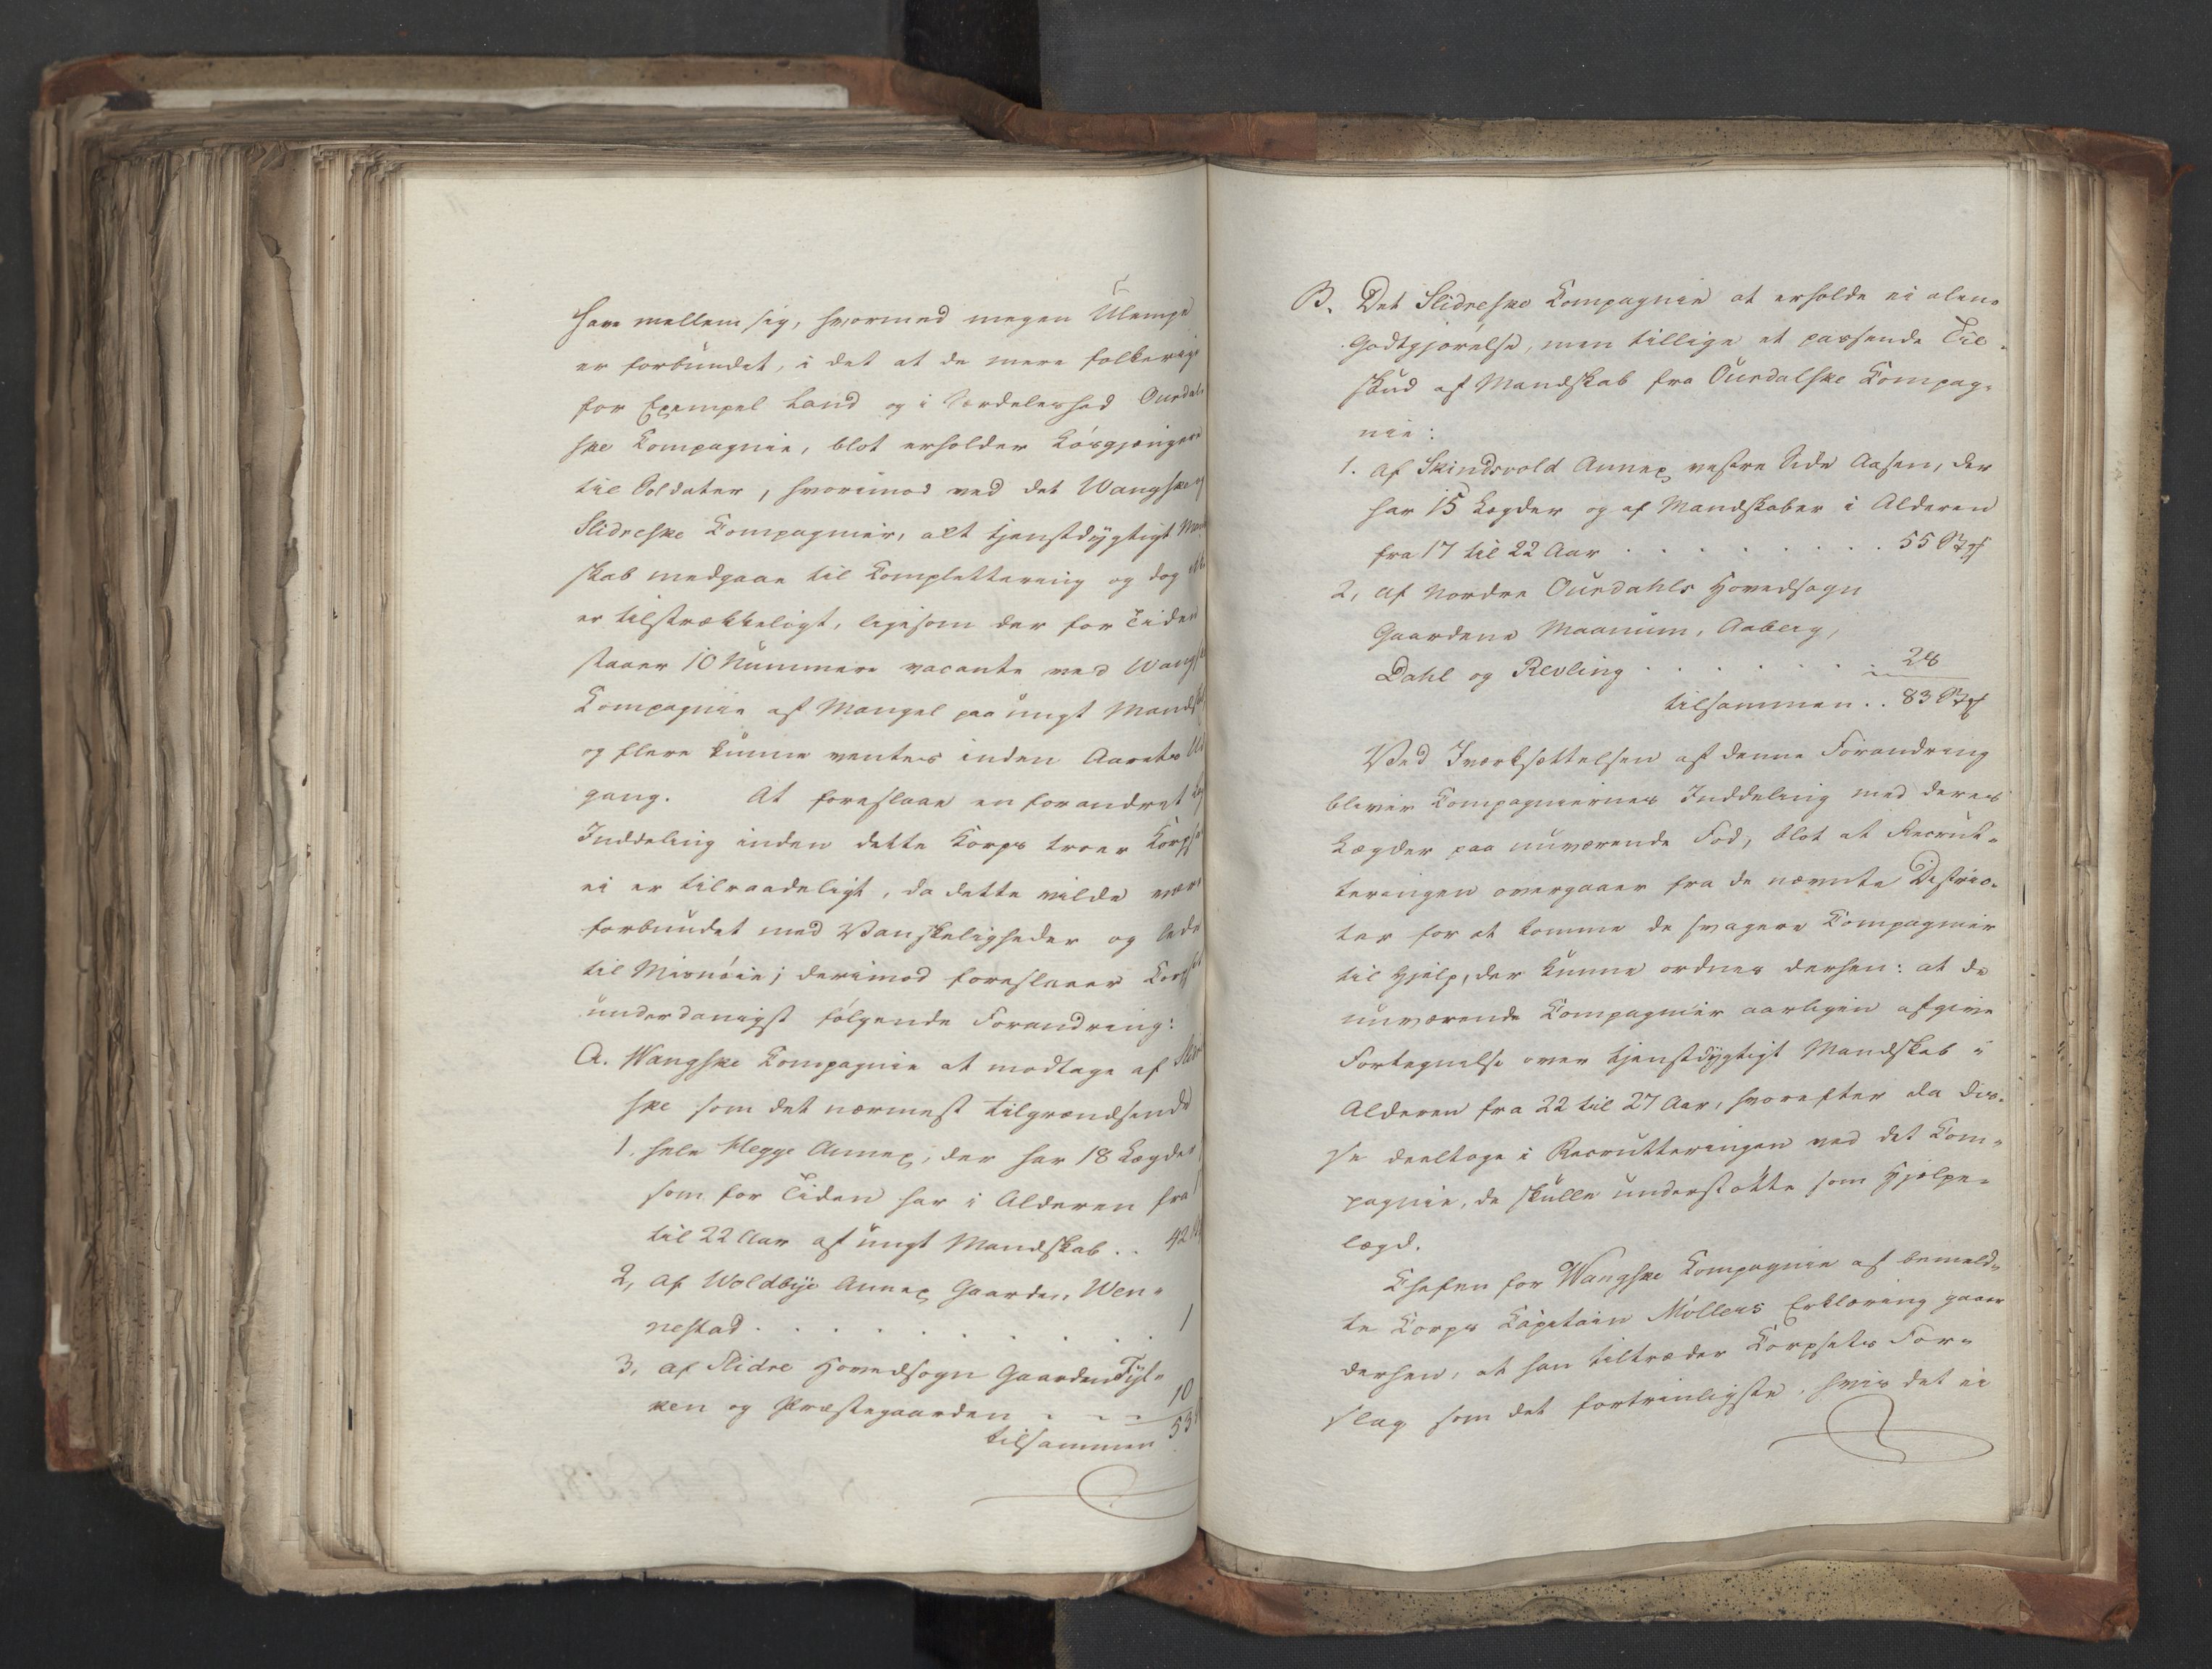 have mellem sig, hvormed megen Ulempe
er forbundet, i det at de mere folkerige
for Exempel Land og i Særdeleshed Ourdals
ske Compagnie, blot erholder Løsgjængere
til Soldater, hvorimod ved det Wangske og
Slidreske Compagnier, alt tjenstdygtigt Mand
skab medgaae til Complettering og dog
er tilstrækkeligt, ligesom der for Tiden
staaer 10 Nummere vacante ved Wangske
Compagnie af Mangel paa ungt Mandskab
og flere kunne ventes inden Aarets Ud
gang. At foreslaae en forandret
Inddeling inden dette Korps troer Korpset
ei er tilraadeligt, da dette vilde være
forbundet med Vanskeligheder og lede
til Misnøie; derimod foreslaaer Corpset
underdanigst følgende Forandring:
A. Wangske Compagnie at modtage af Slidre
ske som det nærmest tilgrændsende
1. hele Hegge Annex, der har 18 Lægder
som for Tiden har i Alderen fra
til 22 Aar af ungt Mandskab . . 42
2, af Woldbye Annex Gaarden Wen-
nestad . . . . . . . . 1
3, af Slidre Hovedsogn Gaarden Tyl-
ken og Præstegaarden . . . 10
tilsammen 53
B. Det Slidreske Compagnie at erholde ei alene
Godtgjørelse, men tillige et passende Til-
skud af Mandskab fra Ourdalske Compag-
nie:
1. af Skindsvold Annex vestre Side Aasen, der
har 15 Lægder og af Mandskaber i Alderen
fra 17 til 22 Aar . . . . . . . . 55
2, af Nordre Ourdahls Hovedsogn
Gaardene Maanum, Aaberg,
Dahl og Revling . . . . . . . 28
tilsammen . . 83
Ved Iværksættelsen af denne Forandring
bliver Compagniernes Inddeling med deres
Lægder paa nuværende Fod, blot at Recrut-
teringen overgaaer fra de nævnte Distric-
ter for at komme de svagere Compagnier
til Hjelp, der kunne ordnes derhen: at de
nuværende Compagnier aarligen afgive
Fortegnelse over tjenstdygtigt Mandskab i
Alderen fra 22 til 27 Aar, hvorefter da dis-
se deeltage i Recrutteringen ved det Com-
pagnie, de skulle understøtte som Hjelpe-
lægd.
Chefen for Wangske Compagnie af bemeld-
te Corps Capitain Møllers Erklæring gaaer
derhen, at han tiltræder Corpsets For-
slag som det fortrinligste, hvis det ei